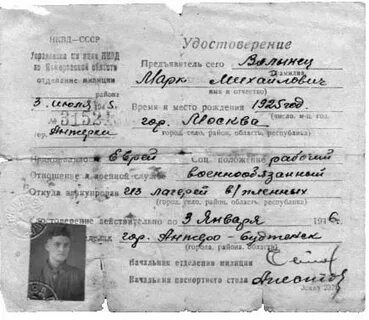 НКВД-СССР
Удостоверение
Управление милиции НКВД
по Кемеровской области
отделение милиции
района
3 июля 1945 г.
№ 31524
гор. Анжерки
Предъявитель сего Валынец
(фамилия)
Марк Михайлович
имя и отчество)
Время и место рождения 1925 год.
(число, м-ц, год,
гор. Москва
город, село, район, область, республика)
Национальность Еврей Соц. положение рабочий
Отношение к военной службе военнообязанный
Откуда эвакуирован из лагерей в/пленных
(город, село, район, область, республика)
Удостоверение действительно по 3 Января 1946 г.
гор. Анжеро-Судженск
(города, района, области)
Начальник отделения милиции
Начальник паспортного стола